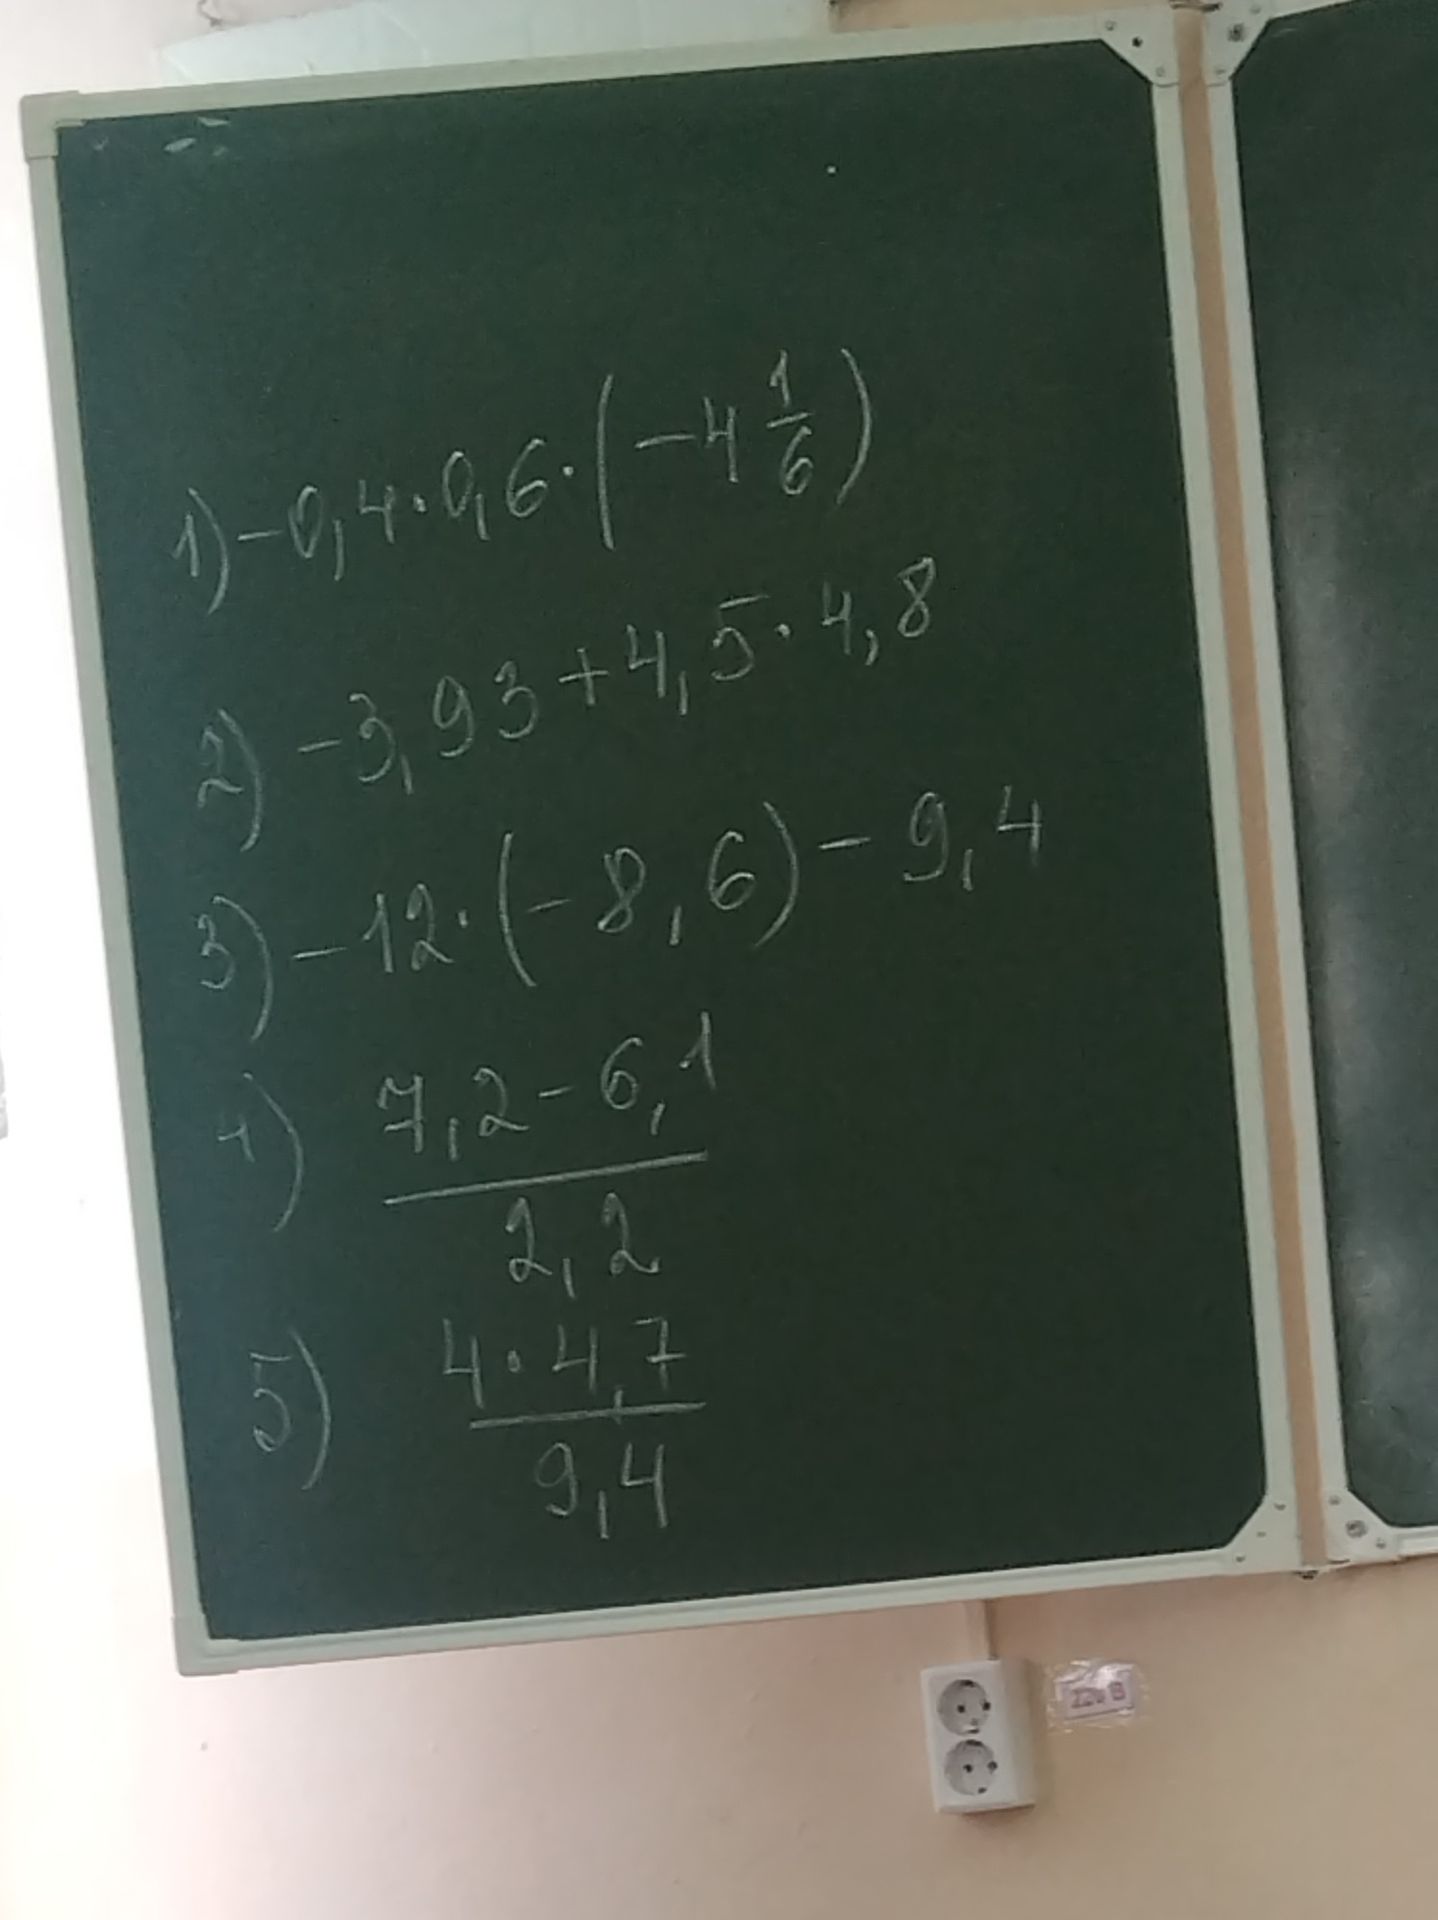 1) -0,4·0,6·(-4 1/6)
2) -3,93+4,5·4,8
3) -12·(-8,6)-9,4
4) (7,2-6,1)/2,2
5) (4·4,7)/9,4
220 В